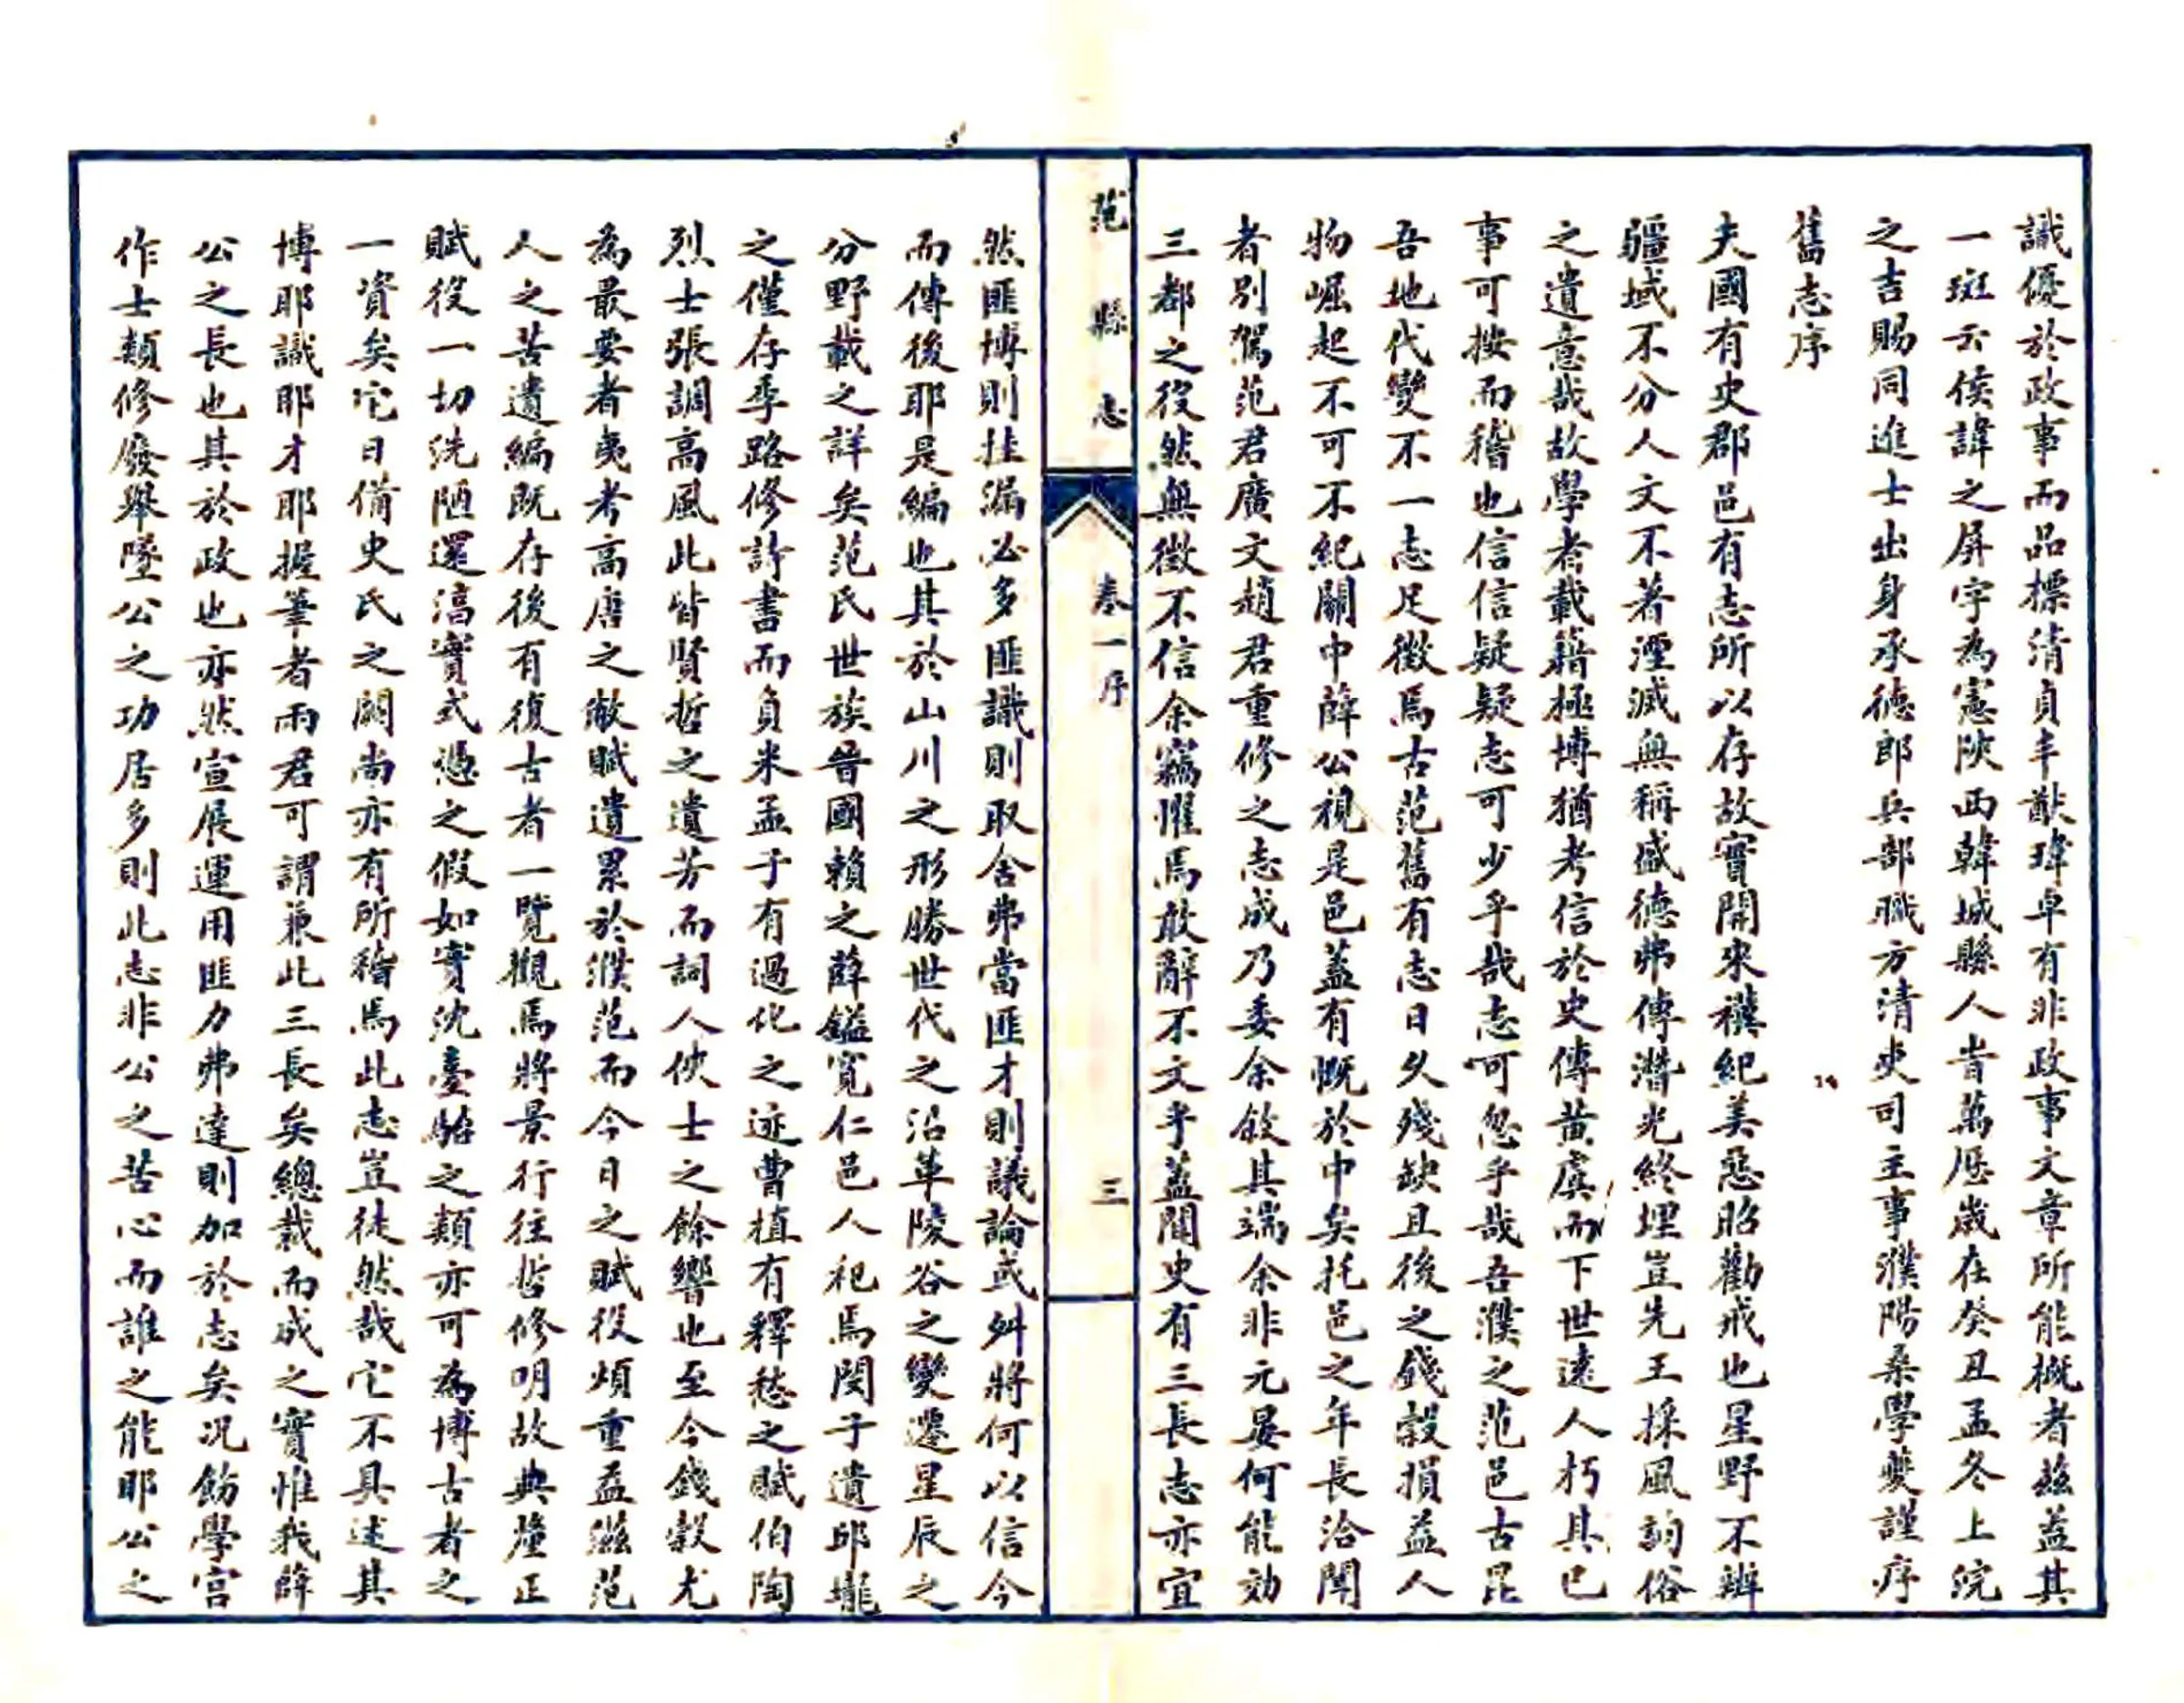 識優於政事而品標清貞丰猷瑋卓有非政事文章所能概者茲益其
一斑云侯諱之屏字為憲陝西韓城縣人旹萬厯歲在癸丑孟冬上浣
之吉賜同進士出身承德郎兵部職方清吏司主事濮陽桑學夔謹序
舊志序
夫國有史郡邑有志所以存故實開來禩紀美惡昭勸戒也星野不辨
疆域不分人文不著湮滅無稱盛德弗傳潛光終埋豈先王採風詢俗
之遺意哉故學者載籍極博猶考信於史傳黃虞而下世遠人朽其已
事可按而稽也信信疑疑志可少乎哉志可忽乎哉吾濮之范邑古昆
吾地代變不一志足徵焉古范舊有志日久殘缺且後之錢穀損益人
物崛起不可不紀關中薛公視是邑蓋有慨於中矣托邑之年長洽聞
者別駕范君廣文趙君重修之志成乃委余敘其端余非元晏何能効
三都之役然無徵不信余竊懼焉敢辭不文乎蓋聞史有三長志亦宜
范縣志 卷一序 三
然匪博則挂漏必多匪識則取舍弗當匪才則議論或舛將何以信今
而傳後耶是編也其於山川之形勝世代之沿革陵谷之變遷星辰之
分野載之詳矣范氏世族晉國賴之薛鎰寬仁邑人祀焉閔子遺邱壠
之僅存季路修詩書而負米孟子有過化之迹曹植有釋愁之賦伯陶
烈士張調高風此皆賢哲之遺芳而詞人俠士之餘響也至今錢穀尤
為最要者夷考高唐之敝賦遺累於濮范而今日之賦役煩重益滋范
人之苦遺編既存後有復古者一覽觀焉將景行往哲修明故典釐正
賦役一切洗陋還淳實式憑之假如實沈臺駘之類亦可為博古者之
一資矣它日備史氏之闕尚亦有所稽焉此志豈徒然哉它不具述其
博耶識耶才耶握筆者兩君可謂兼此三長矣總裁而成之實惟我薛
公之長也其於政也亦然宣展運用匪力弗達則加於志矣况飭學宫
作士類修廢舉墜公之功居多則此志非公之苦心而誰之能耶公之